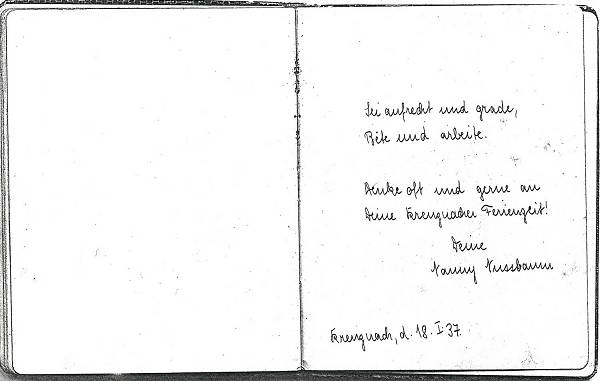 Sei aufrecht und grade,
Bete und arbeite.
Denke oft und gerne an
Deine Kreuznacher Ferienzeit!
Deine
Nanny Nussbaum
Kreuznach, d. 18. I. 37.